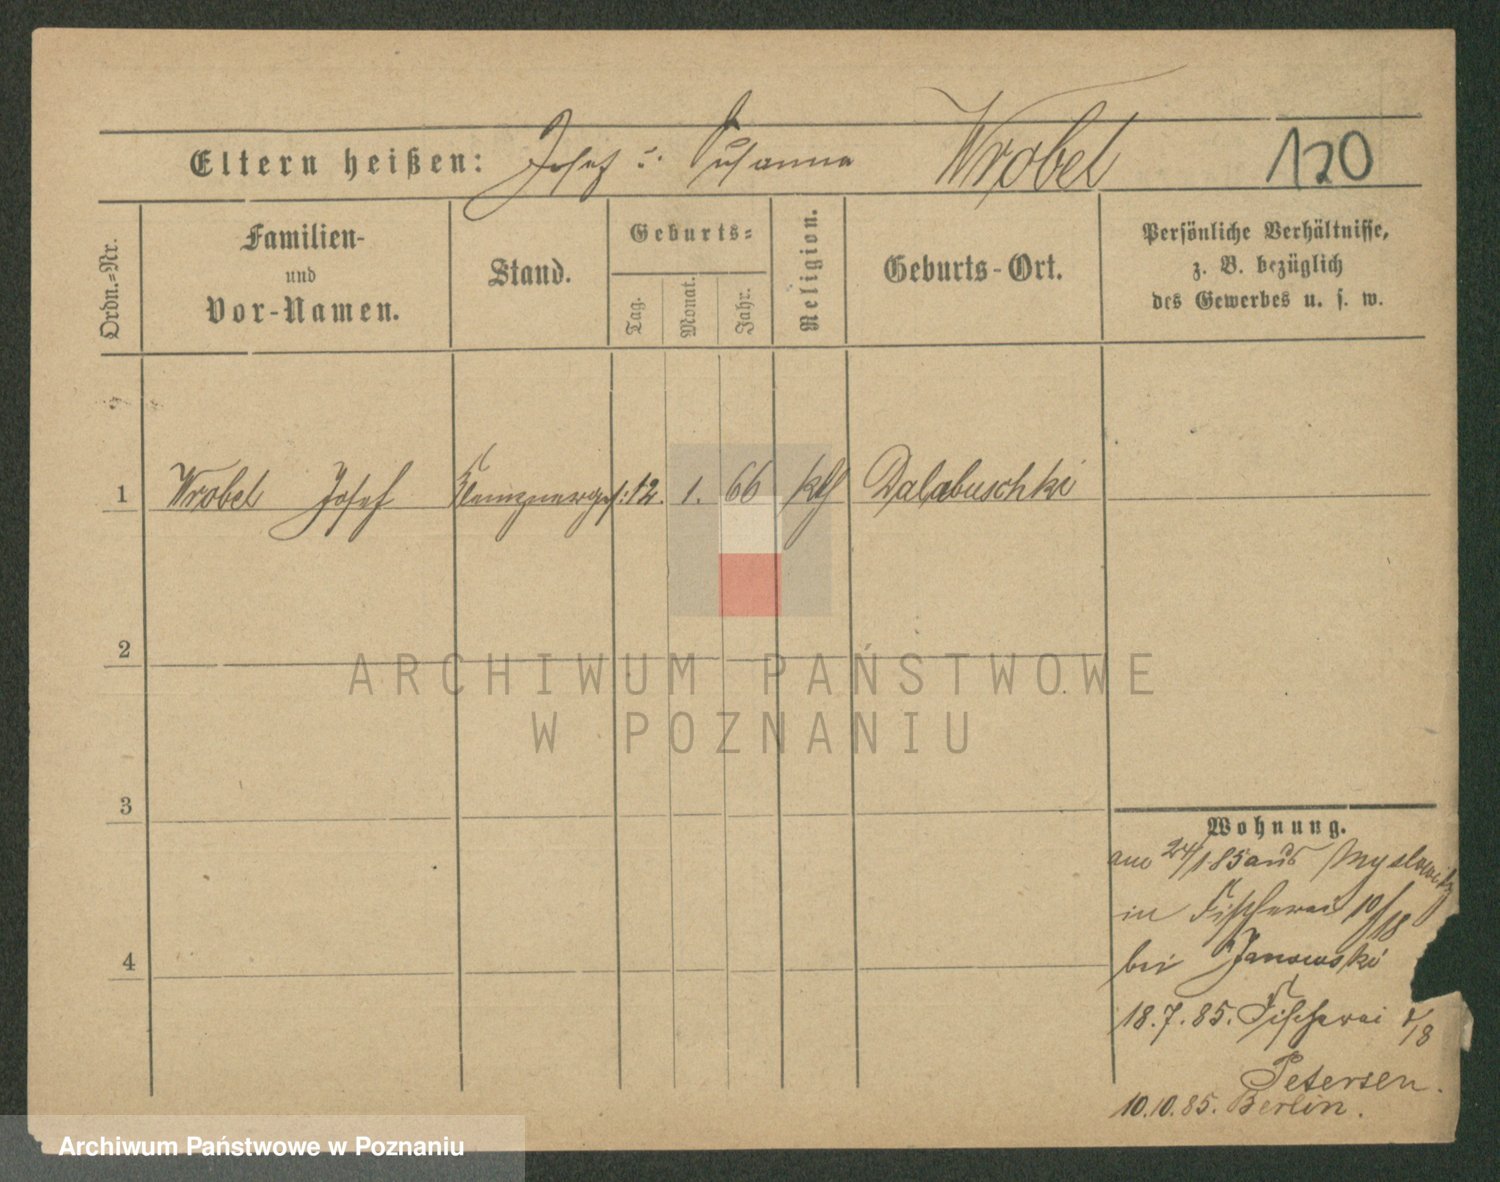 Eltern heißen: Josef u. Susanna Wrobel 120
Ordn.=Nr.
Familien-
und
Vor-Namen.
Stand.
Geburts=
Tag.
Monat.
Jahr.
Religion.
Geburts-Ort.
Persönliche Verhältnisse,
z. B. bezüglich
des Gewerbes u. s. w.
1 Wrobel Josef Klempnerges: 12. 1. 66 kth Dalabuschki
2
3
4
Wohnung.
am 24/1 85 aus Myslowitz
in Fischerei 10/18
bei Janowski
18.7.85. Fischerei /8
Petersen.
10.10.85. Berlin.
ARCHIWUM PAŃSTWOWE
W POZNANIU
Archiwum Państwowe w Poznaniu